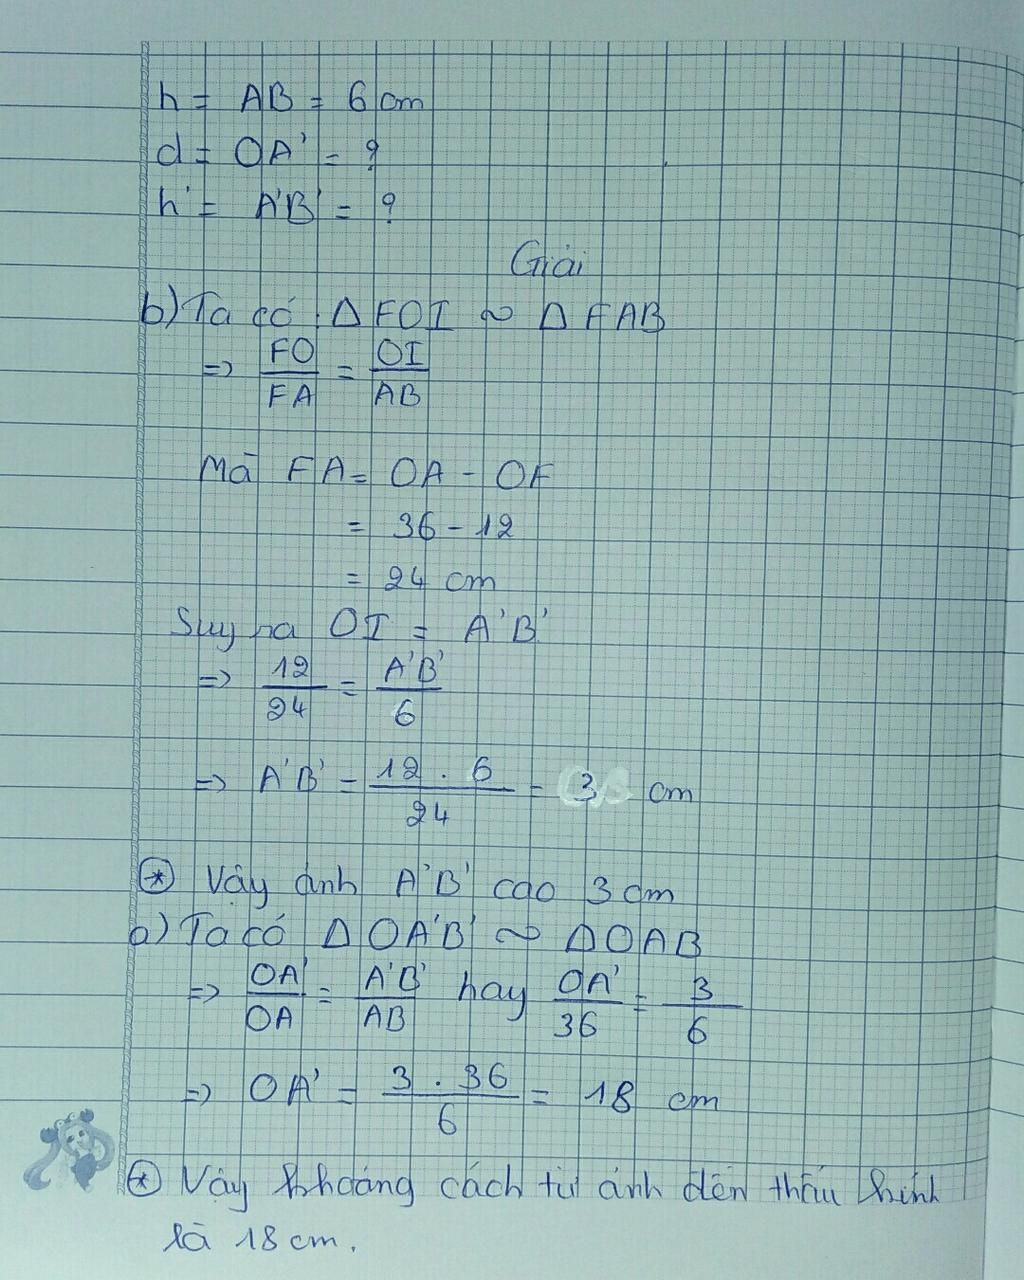 h = AB = 6 cm
d = OA' = ?
h' = A'B' = ?
Giải
b) Ta có : Δ FOI ~ Δ FAB
=> FO/FA = OI/AB
Mà FA = OA - OF
= 36 - 12
= 24 cm
Suy ra OI = A'B'
=> 12/24 = A'B'/6
=> A'B' = 12 . 6/24 = 3 cm
* Vậy ảnh A'B' cao 3 cm
a) Ta có Δ OA'B' ~ Δ OAB
=> OA'/OA = A'B'/AB hay OA'/36 = 3/6
=> OA' = 3 . 36/6 = 18 cm
* Vậy khoảng cách từ ảnh đến thấu kính
là 18 cm.